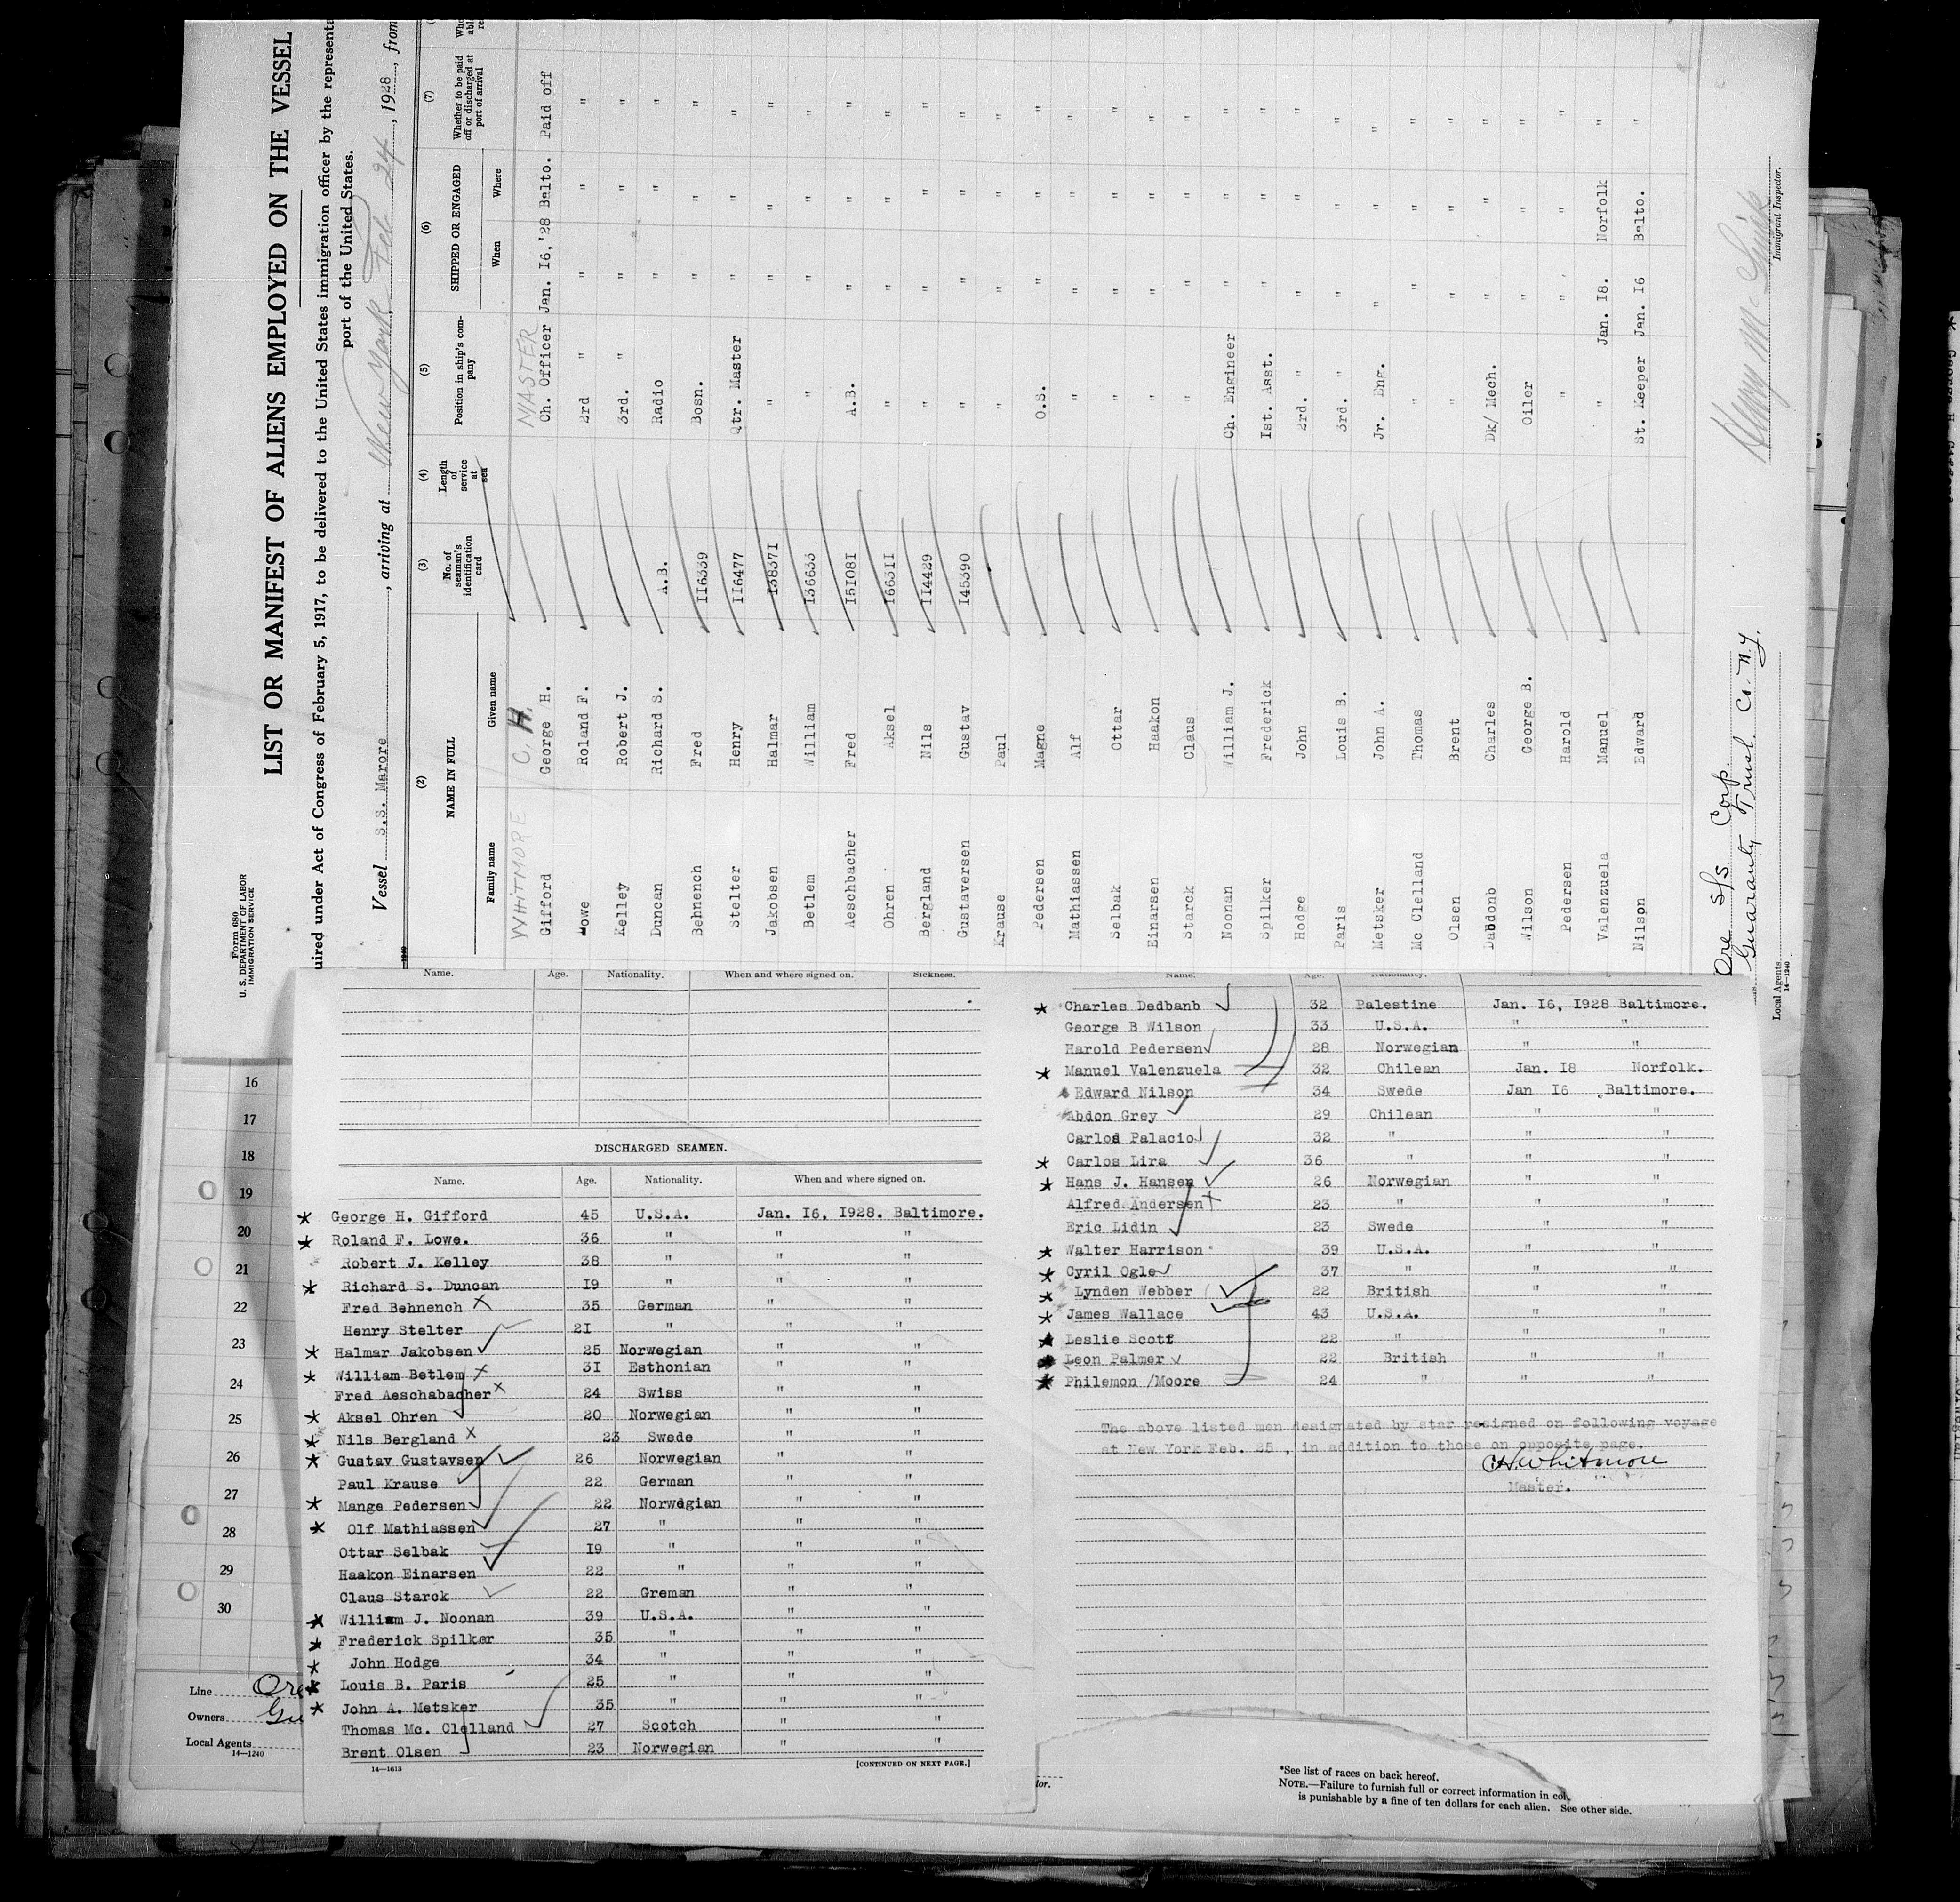 Form 680
U. S. DEPARTMENT OF LABOR
IMMIGRATION SERVICE
LIST OR MANIFEST OF ALIENS EMPLOYED ON THE VESSEL
uired under Act of Congress of February 5, 1917, to be delivered to the United States immigration officer by the representa
port of the United States.
Vessel S.S. Marore, arriving at New York Feb 24, 1928, from
(2) (3) (4) (5) (6) (7)
NAME IN FULL No. of seaman's identification card Length of service at sea Position in ship's company SHIPPED OR ENGAGED Whether to be paid off or discharged at port of arrival
Family name Given name When Where
WHITMORE C. H. MASTER
Gifford George H. Ch. Officer Jan. 16,'28 Balto. Paid off
Lowe Roland F. 2rd " " " "
Kelley Robert J. 3rd. " " " "
Duncan Richard S. A.B. Radio " " "
Behnench Fred 116339 Bosn. " " "
Stelter Henry 116477 Qtr. Master " " "
Jakobsen Halmar 138371 " " " "
Betlem William 136633 " " " "
Aeschbacher Fred 151081 A.B. " " "
Ohren Aksel 166311 " " " "
Bergland Nils 114429 " " " "
Gustaversen Gustav 145390 " " " "
Krause Paul " " " "
Pedersen Magne O.S. " " "
Mathiassen Alf " " " "
Selbak Ottar " " " "
Einarsen Haakon " " " "
Starck Claus " " " "
Noonan William J. Ch. Engineer " " "
Spilker Frederick Ist. Asst. " " "
Hodge John 2rd. " " " "
Paris Louis B. 3rd. " " " "
Metsker John A. Jr. Eng. " " "
Mc Clelland Thomas " " " "
Olsen Brent " " " "
Dabdonb Charles Dk/ Mech. " " "
Wilson George B. Oiler " " "
Pedersen Harold " " " "
Valenzuela Manuel " Jan. 18. Norfolk "
Nilson Edward St. Keeper Jan. 16 Balto. "
Ore S/S Corp.
Guaranty Trust Co. N.Y.
Local Agents
14—1240
Immigrant Inspector.
16
17
18
19
20
21
22
23
24
25
26
27
28
29
30
Line Ore
Owners Gu
Local Agents
14—1240
Name. Age. Nationality. When and where signed on. Sickness.
DISCHARGED SEAMEN.
Name. Age. Nationality. When and where signed on.
* George H. Gifford 45 U.S.A. Jan. I6, I928. Baltimore.
* Roland F. Lowe. 36 " " "
Robert J. Kelley 38 " " "
* Richard S. Duncan I9 " " "
Fred Behnench X 35 German " "
Henry Stelter 2I " " "
* Halmar Jakobsen 25 Norwegian " "
* William Betlem X 3I Esthonian " "
Fred Aeschabacher X 24 Swiss " "
* Aksel Ohren 20 Norwegian " "
* Nils Bergland X 23 Swede " "
* Gustav Gustavsen 26 Norwegian " "
Paul Krause 22 German " "
* Mange Pedersen 22 Norwegian " "
* Olf Mathiassen 27 " " "
Ottar Selbak I9 " " "
Haakon Einarsen 22 " " "
Claus Starck 22 Greman " "
* William J. Noonan 39 U.S.A. " "
* Frederick Spilker 35 " " "
* John Hodge 34 " " "
* Louis B. Paris 25 " " "
* John A. Metsker 35 " " "
Thomas Mc. Clelland 27 Scotch " "
Brent Olsen 23 Norwegian " "
14—1613 [CONTINUED ON NEXT PAGE.]
Name. Age. Nationality.
* Charles Dedbanb 32 Palestine Jan. I6, I928 Baltimore.
George B Wilson 33 U.S.A. " "
Harold Pedersen 28 Norwegian " "
* Manuel Valenzuela 32 Chilean Jan. I8 Norfolk.
Edward Nilson 34 Swede Jan I6 Baltimore.
Abdon Grey 29 Chilean " "
Carlos Palacio 32 " " "
* Carlos Lira 36 " " "
* Hans J. Hansen 26 Norwegian " "
Alfred Andersen 23 " " "
Eric Lidin 23 Swede " "
* Walter Harrison 39 U.S.A. " "
* Cyril Ogle 37 " " "
* Lynden Webber 22 British " "
* James Wallace 43 U.S.A. " "
* Leslie Scott 22 " " "
* Leon Palmer 22 British " "
* Philemon /Moore 24 " " "
The above listed men designated by star resigned on following voyage
at New York Feb. 25 , in addition to those on opposite page.
CHWhitmore
Master.
*See list of races on back hereof.
NOTE.—Failure to furnish full or correct information in col.
is punishable by a fine of ten dollars for each alien. See other side.